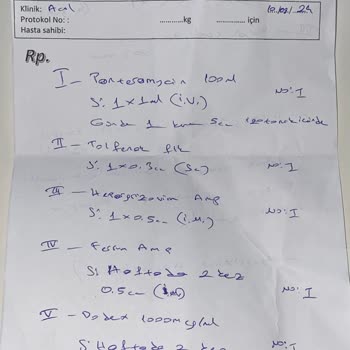 Klinik: Acil
Protokol No: : ............kg ............için /24
Hasta sahibi:
Rp.
I - 100ml
S: 1 x 1ml (i.v.) NO: I
Günde 1 5cc
II - Tolfenol flk
S: 1 x 0.3cc (Sc) NO: I
III - Amp
S: 1 x 0.5cc (i.m.) NO: I
IV - Ferrum Amp
S: Haftada 2 kez
0.5cc NO: I
V - Dodex 1000mcg/ml
S: Haftada 2 kez